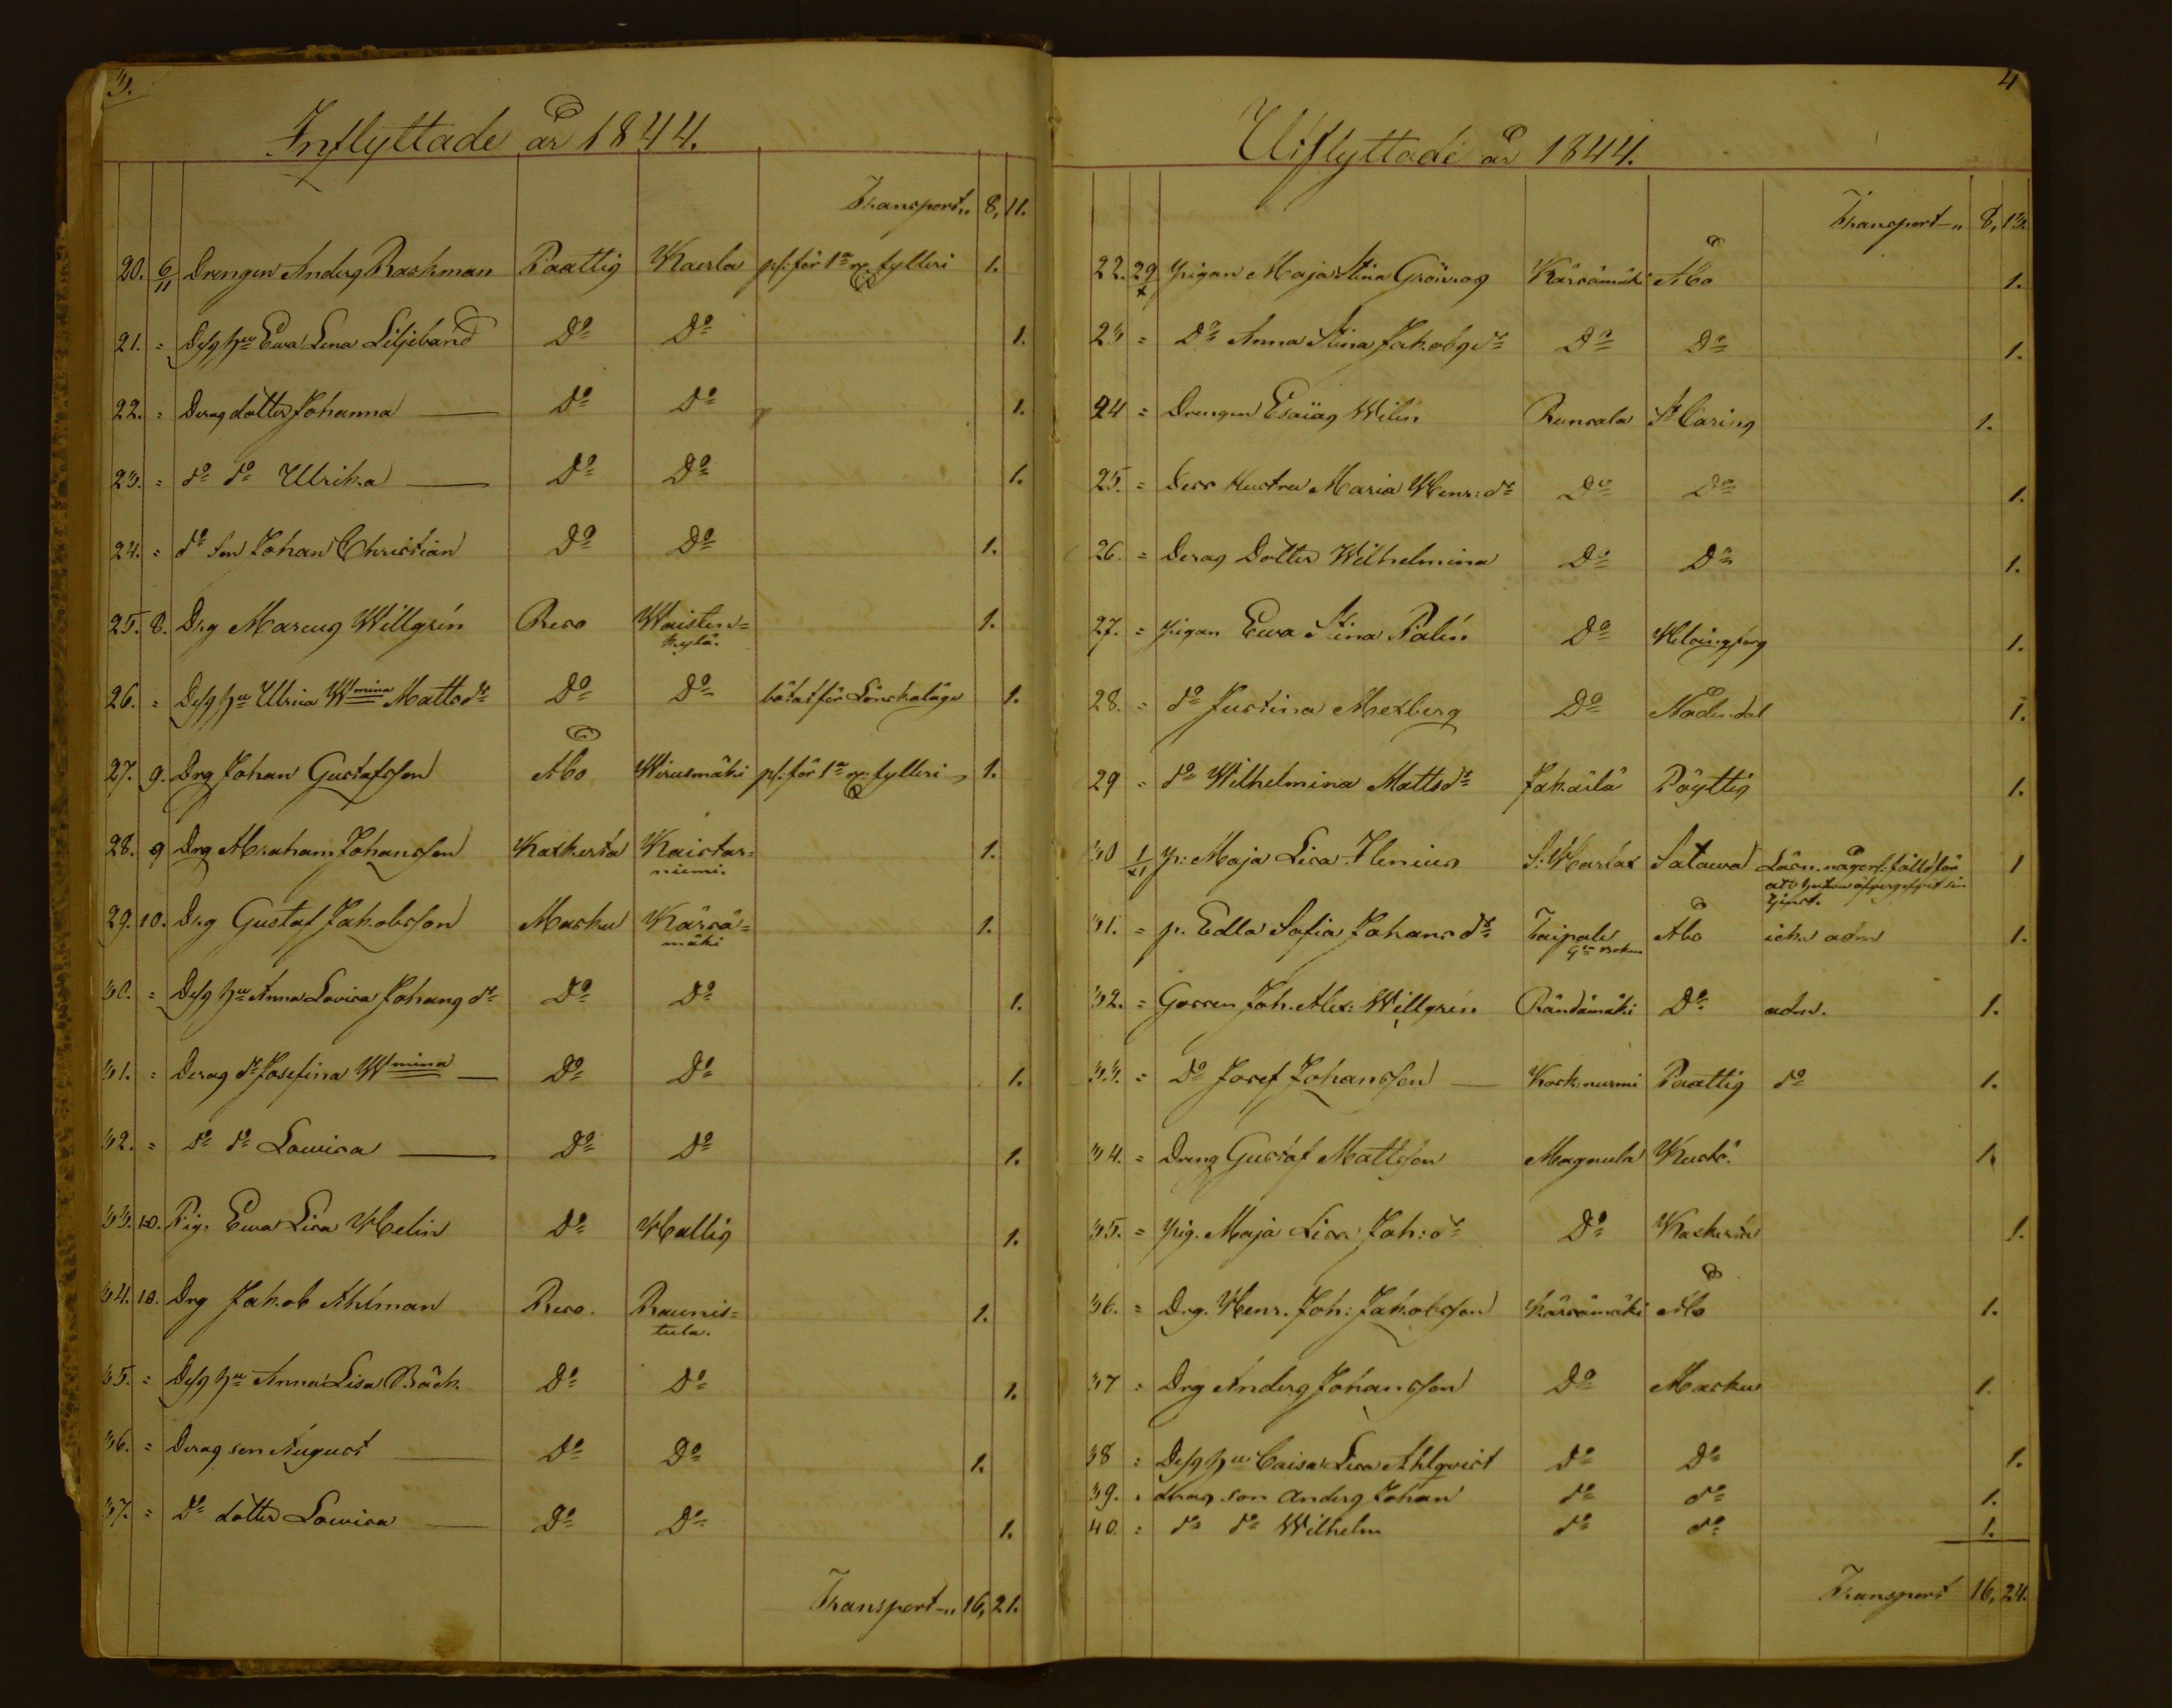 3.
Inflyttade år 1844.
Transport„ 8, 11.
20. 6/11 Drengen Anders Backman Paattis Kaerla pl: för 1a rg fylleri 1.
21. = Dess hu Ewa Lena Liljebland Do Do 1.
22. = Deras dotter Johanna — Do Do 1.
23. = do do Ulrika — Do Do 1.
24. = do son Johan Christian Do Do 1.
25. 8. Drg Marcus Willgrén Reso Waisten=
kylä. 1.
26. = Dess hu Ulrica Wmina Mattsdr Do Do bötat för Lönskaläge 1.
27. 9. Drg Johan Gustafsson Åbo Wirusmäki pl: för 1a rg: fylleri 1.
28. 9 Drg Abraham Johansson Kakserta Kaistar=
niemi. 1.
29. 10. Drg Gustaf Jakobsson Masku Kärsä=
mäki 1.
30. = Dess hu Anna Lovisa Johansdr Do Do 1.
31. = Deras dr Josefina Wmina — Do Do 1.
32. = do do Lowisa — Do Do 1.
33. 10. Pig. Ewa Lisa Helin Do Hallis 1.
34. 10. Drg Jakob Ahlman Reso. Raunis=
tula. 1.
35. = Dess hu Anna Lisa Bäck. Do Do 1.
36. = Deras son August — Do Do 1.
37. = Do dotter Lowisa — Do Do 1.
Transport„ 16, 21.
4
Utflyttade år 1844.
Transport„ 8, 13.
22. 29/x pigan Maja Stina Grönros Kärsämäki Åbo 1.
23 = Do Anna Stina Jakobsdr Do Do 1.
24 = Drengen Esaias Wilén Runsala St Carins 1.
25. = Dess Hustru Maria Henr: dr Do Do 1.
26. = Deras Dotter Wilhelmina Do Do 1.
27. = pigan Ewa Stina Palén Do Helsingfors 1.
28. = do Justina Mexberg Do Nådendal 1.
29 = do Wilhelmina Mattsdr Jakärlä Pöyttis 1.
30 1/XI p: Maja Lisa Ilenius S: Marlax Satawa 1
31. = p. Edla Sofia Johansdr Taipale Åbo icke adm 1.
32. = Gossen Joh. Alex: Willgrén Räntämäki Do adm. 1.
33. = Do Josef Johansson — Koskinurmi Paattis do 1.
34. = Dreng Gustaf Mattsson Magnula Kustö. 1.
35. = pig. Maja Lisa Joh: dr Do Kakserta 1.
36. = Drg. Henr. Joh: Jakobsson Kärsämäki Åbo 1.
37 = Drg Anders Johansson Do Masku 1.
38 = Dess hu Caisa Lisa Ahlqvist Do Do 1.
39. = deras son Anders Johan do do 1.
40. = do do Wilhelm do do 1.
Transport 16, 24.